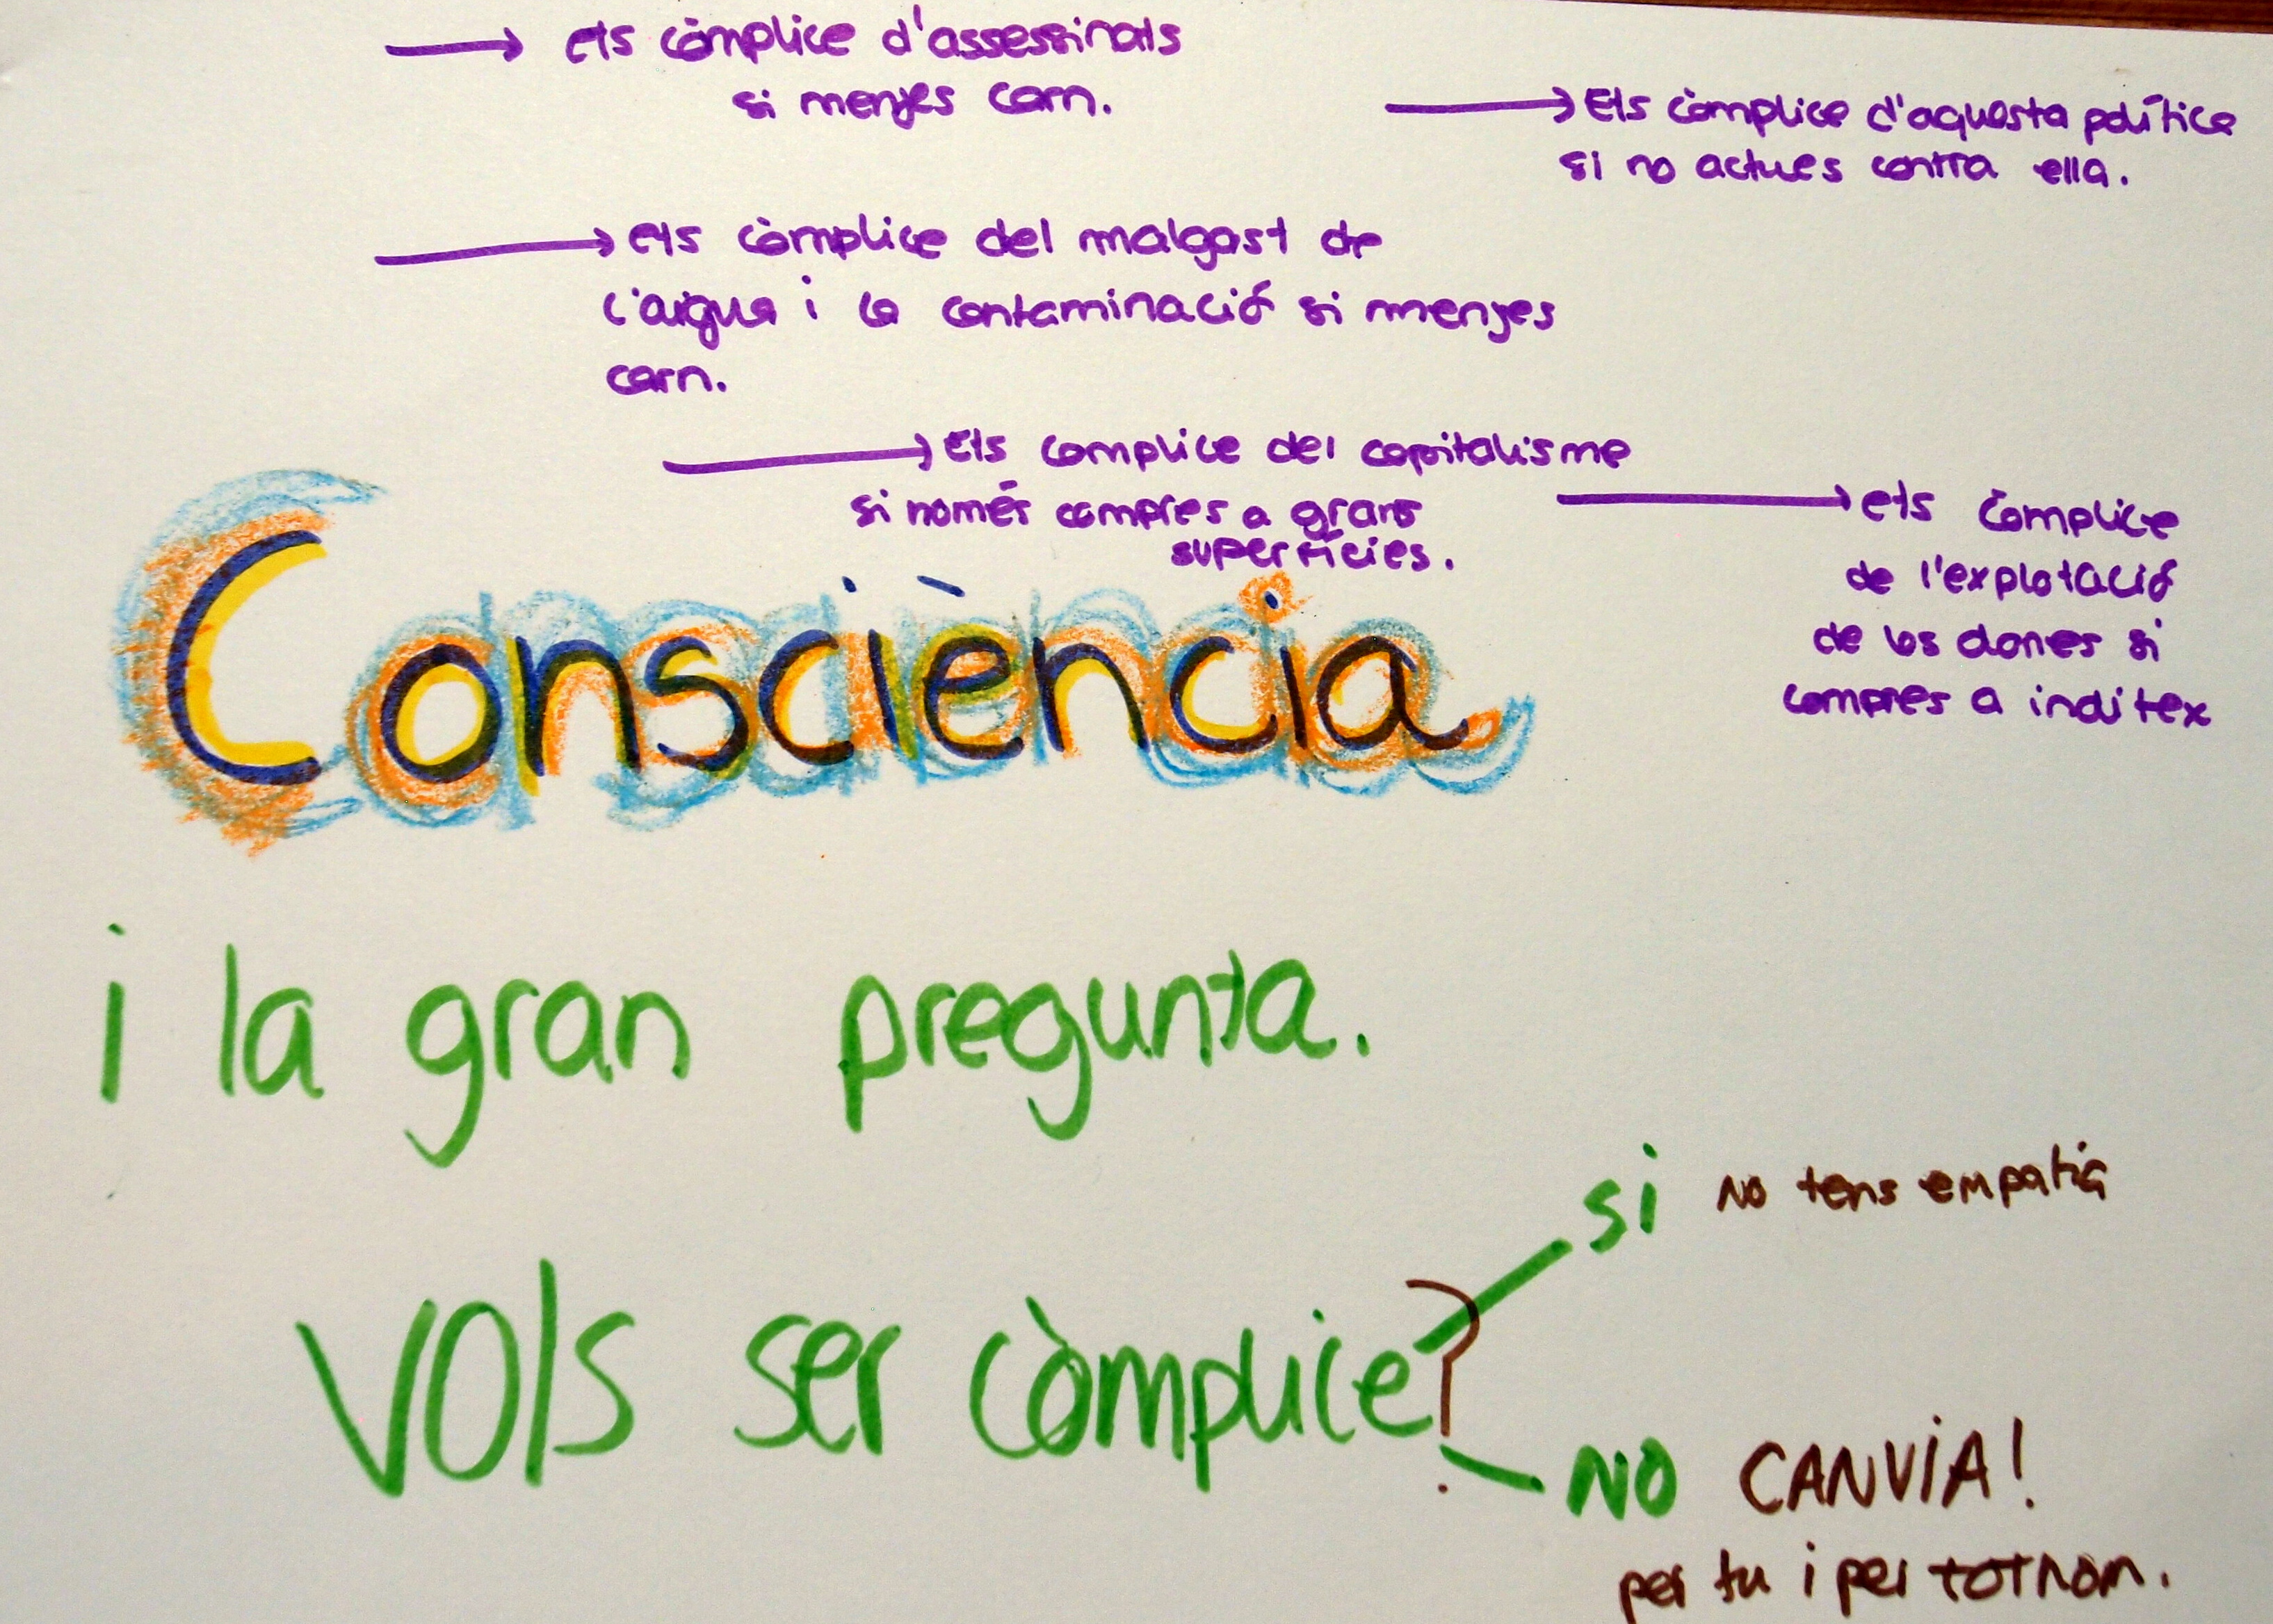 ets còmplice d'assessinats
si menjes carn.
Ets còmplice d'aquesta política
si no actues contra ella.
ets còmplice del malgast de
l'aigua i la contaminació si menjes
carn.
Ets complice del capitalisme
si només compres a grans
superfícies.
ets còmplice
de l'explotació
de les dones si
compres a inditex
Consciència
i la gran pregunta.
Vols ser còmplice?
si No tens empatia
NO CANVIA!
per tu i per tothom.